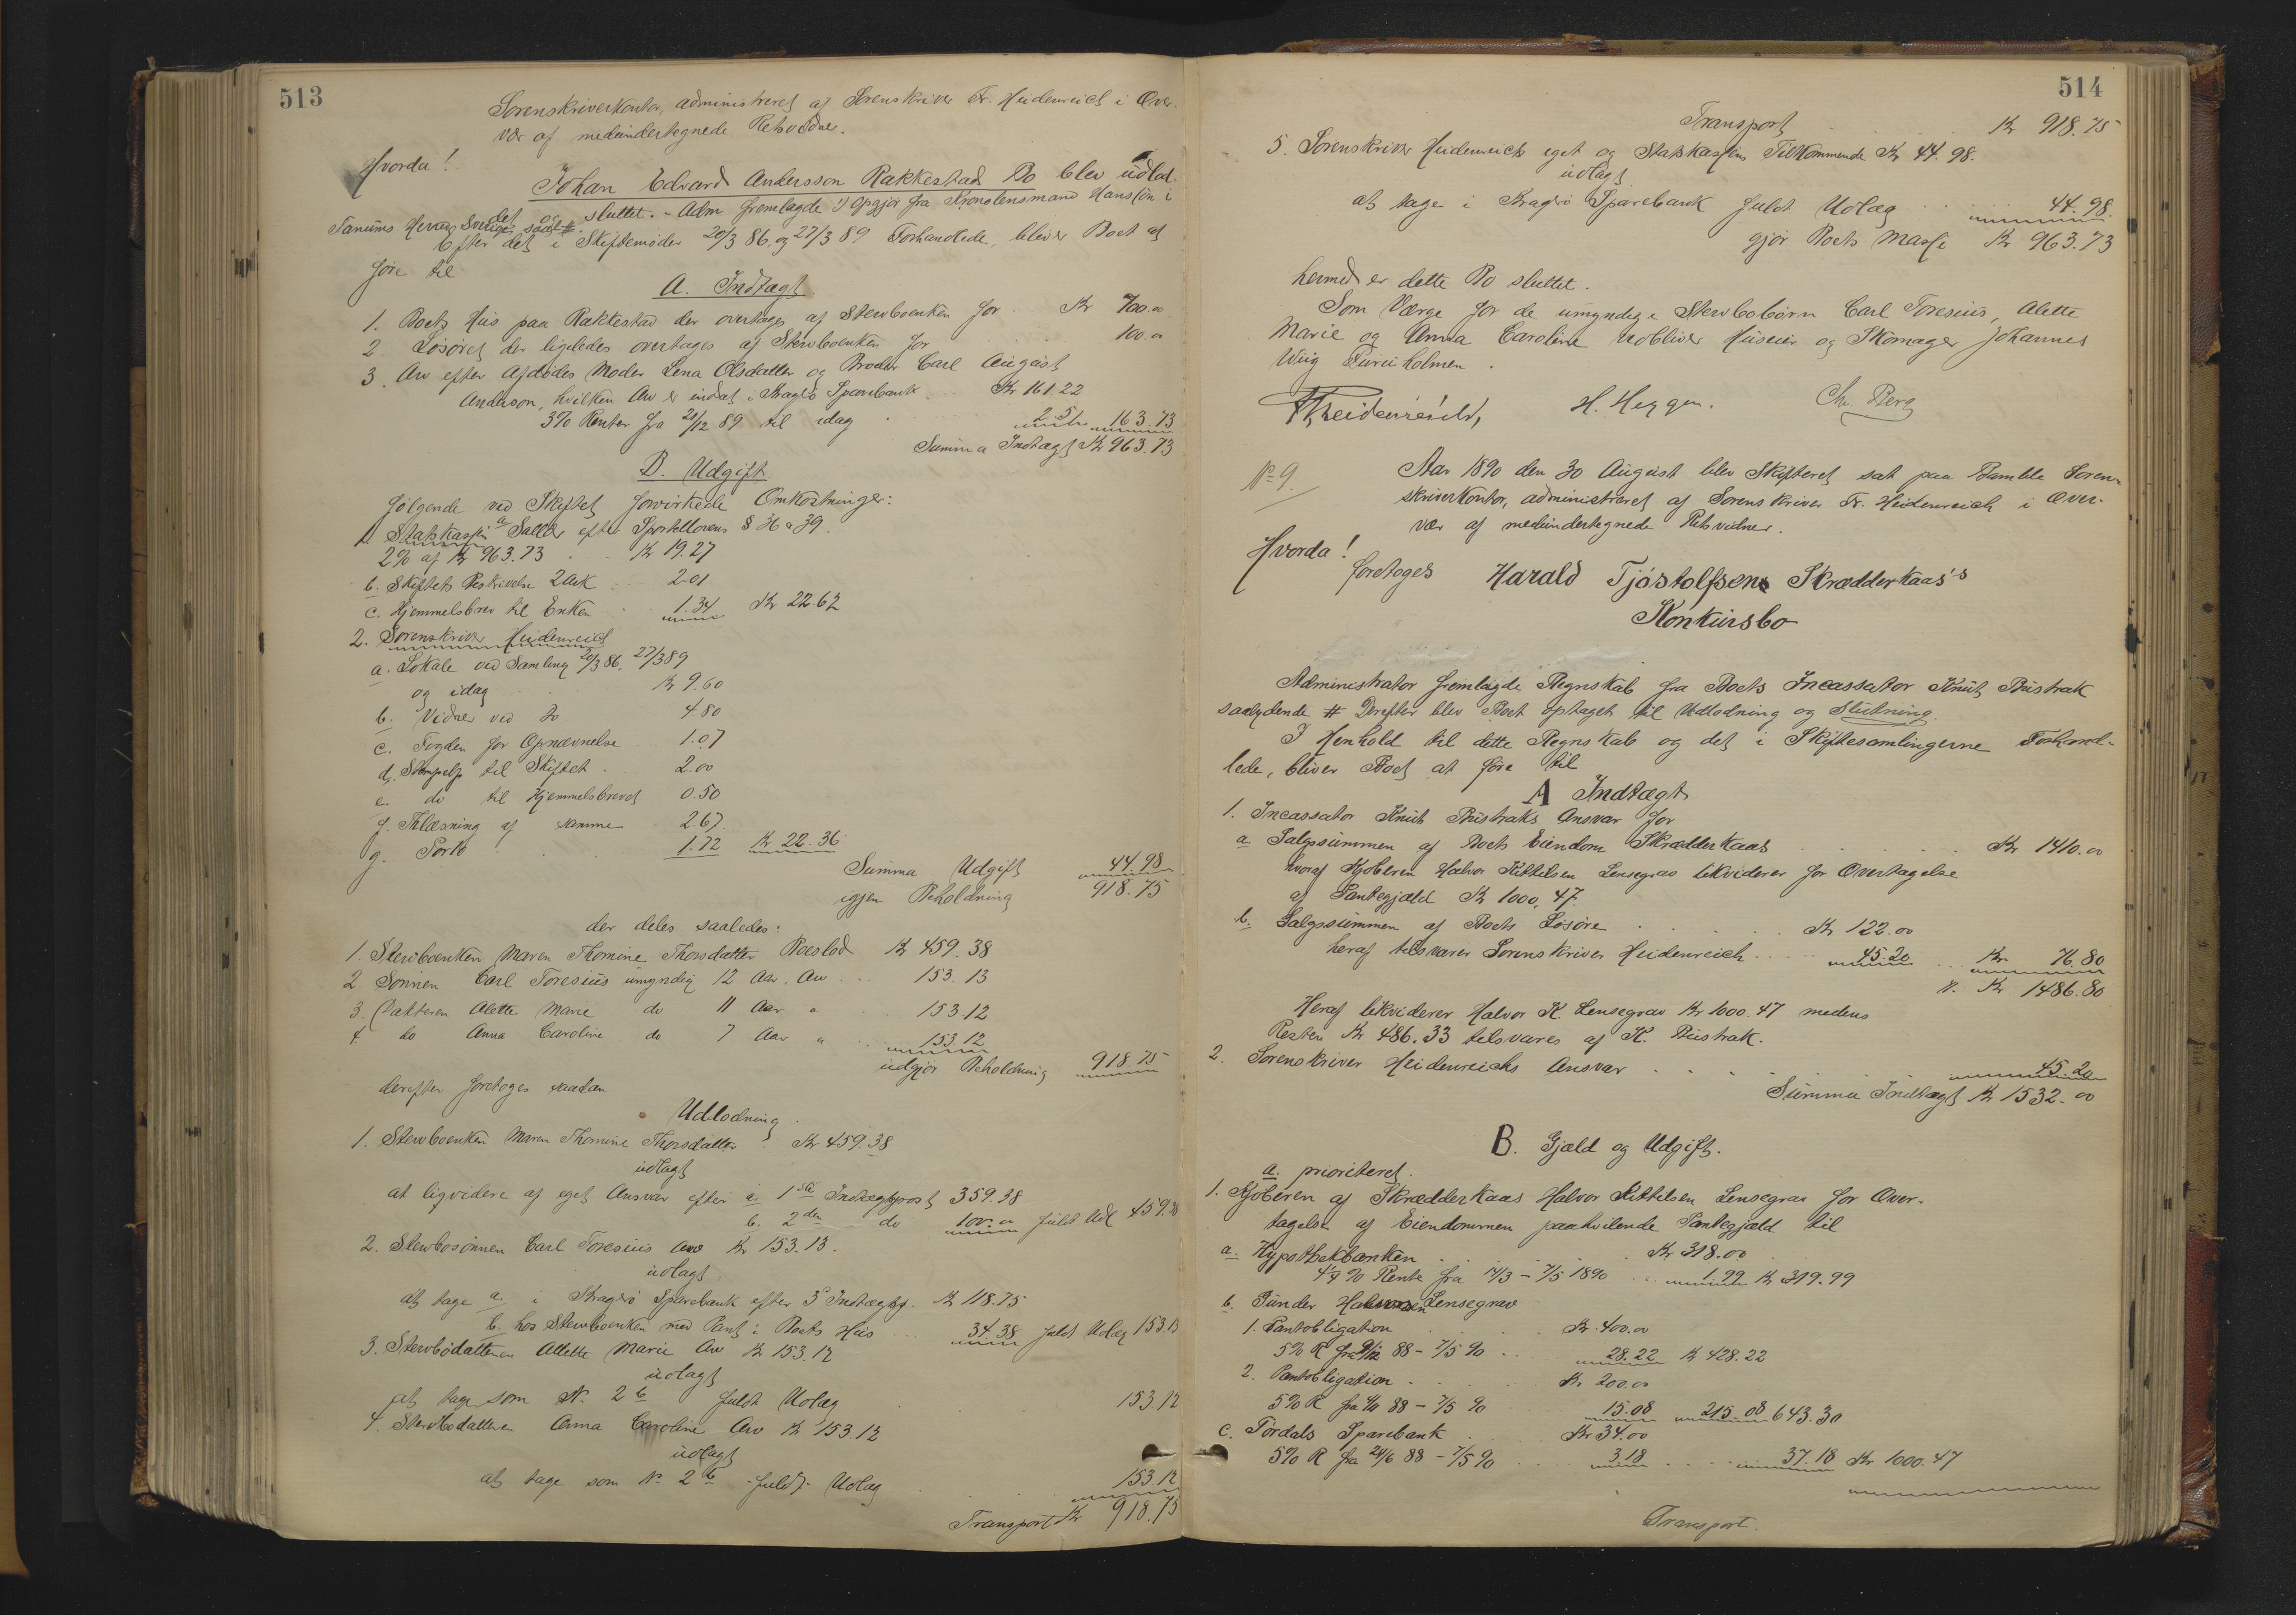 513
Sorenskriverkontor, administreret af Sorenskriver Fr. Heidenreich i Over-
vær af medundertegnede Retsvidner.
Hvorda!
Johan Edvard Andersson Rakkestad Bo blev udlod-
det og sluttet. - Adm fremlagde Opgjør fra Kronolensmand Hanssøn i
Tanums Herred Sverige, saal #.
Efter det i Skiftemøder 20/3 86 og 27/3 89 Forhandlede, bliver Boet at
føre til
A. Indtægt
1. Boets Hus paa Rakkestad der overtages af Stervboenken for Kr 700.00
2 Løsøret der ligeledes overtages af Stervboenken for 100.00
3. Arv efter Afdødes Moder Lena Olsdatter og Broder Carl August
Anderson, hvilken Arv er indsat i Kragerø Sparebank Kr 161.22
3% Renter fra 21/12 89 til idag 2.51 163.73
Summa Indtægt Kr 963.73
B. Udgift
følgende ved Skiftet forvirkede Omkostninger:
1 Statskassen a Sallær efter Sportellovens § 36 & 39.
2% af Kr 963.73 Kr 19.27
b. Skiftets Beskrivelse 2 Ark 2.01
c. Hjemmelsbrev til Enken 1.34 Kr 22.62
2. Sorenskriver Heidenreich
a. Lokale ved Samling 20/3 86, 27/3 89
og idag Kr 9.60
b. Vidner ved do 4.80
c. Fogden for Opnævnelse 1.07
d. Stempelp til Skiftet 2.00
e. do til Hjemmelsbrevet 0.50
f. Thlæsning af samme 2.67
g. Porto 1.72 Kr 22.36
Summa Udgift 44.98
igjen Beholdning 918.75
der deles saaledes:
1. Stervboenken Maren Thomine Thorsdatter Boeslod Kr 459.38
2. Sønnen Carl Toresius umyndig 12 Aar, Arv 153.13
3. Datteren Alette Marie do 11 Aar " 153.12
4 do Anna Caroline do 7 Aar " 153.12
udgjør Beholdning 918.75
derefter foretoges saadan
Udlodning.
1. Stervboenken Maren Thomine Thorsdatter Kr 459.38
udlagt
at ligvidere af eget Ansvar efter a 1ste Indtægtspost 359.38
b. 2den do 100.00 fuldt Udl 459.38
2. Stervbosønnen Carl Toresius Arv Kr 153.13.
udlagt
at tage a. i Kragerø Sparebank efter 3' Indtægtsp. Kr 118.75
b. hos Stervboenken med Pant i Boets Hus 34.38 fuldt Udlæg 153.13
3. Stervbodatteren Allette Marie Arv Kr 153.12
udlagt
at tage som No 2 b fuldt Udlæg 153.12
4. Stervbodatteren Anna Caroline Arv Kr 153.12
udlagt
at tage som No 2 b fuldt Udlæg 153.12
Transport Kr 918.75
514
Transport Kr 918.75
5. Sorenskriver Heidenreichs eget og Statskassens Tilkommende Kr 44.98.
udlagt
at tage i Kragerø Sparebank fuldt Udlæg 44.98.
gjør Boets Masse Kr 963.73
hermed er dette Bo sluttet.
Som Værge for de umyndige Stervbobørn Carl Toresius, Alette
Marie og Anna Caroline udbliver Huseier og Skomager Johannes
Wiig Furuholmen.
FrHeidenreich, H. Heggen. Chr. Berg
No 9. Aar 1890 den 30 August blev Skifteret sat paa Bamble Soren-
skriverkontor, administreret af Sorenskriver Fr. Heidenreich i Over-
vær af medundertegnede Retsvidner.
Hvorda!
foretoges Harald Tjøstolfsens Skrædderkaas's
Konkursbo
Administrator fremlagde Regnskab fra Boets Incassator Knut Bustrak
saalydende # Derefter blev Boet optaget til Udlodning og Slutning.
I Henhold til dette Regnskab og det i Skiftesamlingerne Forhand-
lede, bliver Boet at føre til
A Indtægt
1. Incassator Knut Bustraks Ansvar for
a. Salgssummen af Boets Eiendom Skrædderkaas Kr 1410.00
hvoraf Kjøberen Halvor Kittelsen Lensegrav likviderer for Overtagelse
af Pantegjæld Kr 1000,47.
b. Salgssummen af Boets Løsøre Kr 122.00
heraf tilsvarer Sorenskriver Heidenreich 45.20 Kr 76.80
Kr 1486.80
Heraf likviderer Halvor K. Lensegrav Kr 1000.47 medens
Resten Kr 486.33 tilsvares af K. Bustrak.
2. Sorenskriver Heidenreichs Ansvar 45.20
Summa Indtægt Kr 1532.00
B. Gjæld og Udgift.
a. prioriteret.
1. Kjøberen af Skrædderkaas Halvor Kittelsen Lensegrav for Over-
tagelse af Eiendommen paahvilende Pantegjæld til
a. Hypothekbanken Kr 318.00
4 1/4 % Rente fra 14/3 - 7/5 1890 1.99 Kr 319.99
b. Gunder Halvorsen Lensegrav
1. Pantobligation Kr. 400.00
5% R fra 9/12 88 - 7/5 90 28.22 Kr 428.22
2. Pantobligation Kr. 200.00
5% R fra 4/11 88 - 7/5 90 15.08 215.08 643.30
c. Tørdals Sparebank Kr 34.00
5% R fra 24/6 88 - 7/5 90 3.18 37.18 Kr 1000.47
Transport.